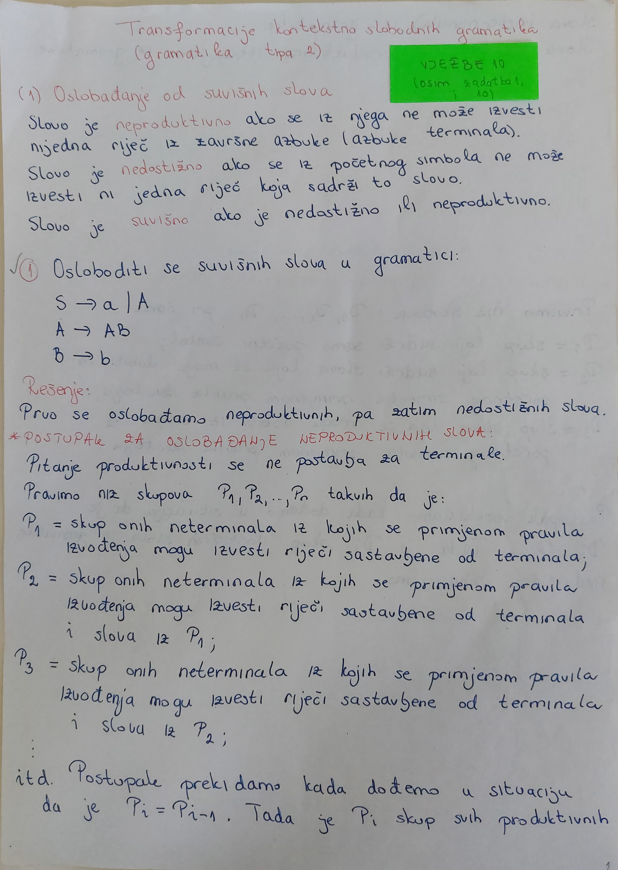 Transformacije kontekstno slobodnih gramatika
(gramatika tipa 2)
VJEŽBE 10
(osim zadatka 1.
i 10)
(1) Oslobađanje od suvišnih slova
Slovo je neproduktivno ako se iz njega ne može izvesti
nijedna riječ iz završne azbuke (azbuke terminala).
Slovo je nedostižno ako se iz početnog simbola ne može
izvesti ni jedna riječ koja sadrži to slovo.
Slovo je suvišno ako je nedostižno ili neproduktivno.
√ 1 Osloboditi se suvišnih slova u gramatici:
S → a | A
A → AB
B → b
Rešenje:
Prvo se oslobađamo neproduktivnih, pa zatim nedostižnih slova.
*POSTUPAK ZA OSLOBAĐANJE NEPRODUKTIVNIH SLOVA:
Pitanje produktivnosti se ne postavlja za terminale.
Pravimo niz skupova P₁, P₂, .., Pn takvih da je:
P₁ = skup onih neterminala iz kojih se primjenom pravila
izvođenja mogu izvesti riječi sastavljene od terminala;
P₂ = skup onih neterminala iz kojih se primjenom pravila
izvođenja mogu izvesti riječi sastavljene od terminala
i slova iz P₁;
P₃ = skup onih neterminala iz kojih se primjenom pravila
izvođenja mogu izvesti riječi sastavljene od terminala
i slova iz P₂;
⋮
itd. Postupak prekidamo kada dođemo u situaciju
da je Pi = Pi-1. Tada je Pi skup svih produktivnih
1